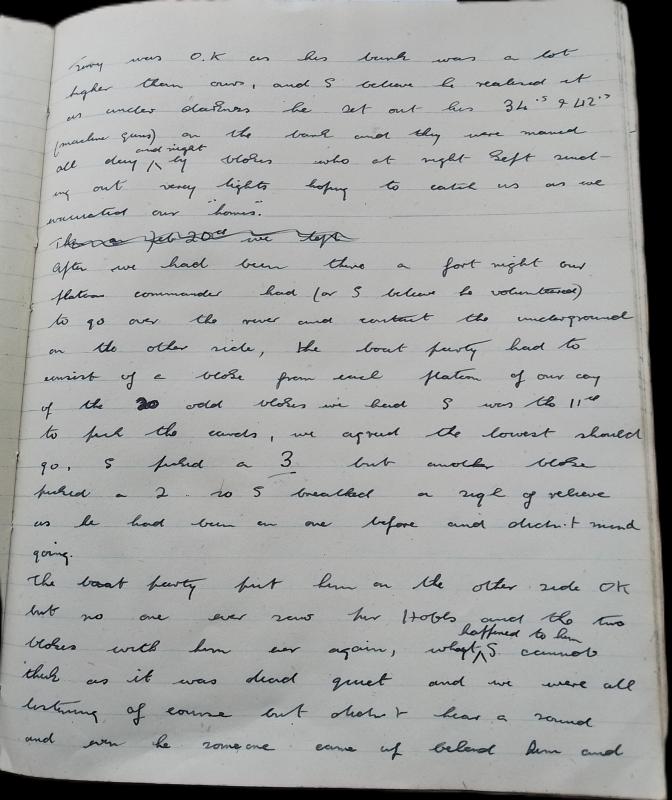 Jerry was O.K as his bank was a lot
higher than ours, and I believe he realised it
as under darkness he set out his 34.s & 42.s
(machine guns) on the bank and they were manned
all day and night by blokes who at night kept send-
ing out verey lights hoping to catch us as we
evacuated our "homes".
The Feb 20th we left
After we had been there a fort night our
platoon commander had (or I believe he volunteered)
to go over the river and contact the underground
on the other side, the boat party had to
consist of a bloke from each platoon of our coy
of the 20 odd blokes we had I was the 11th
to pick the cards, we agreed the lowest should
go, I picked a 3 but another bloke
picked a 2. so I breathed a sigh of relieve
as he had been on one before and didn't mind
going.
The boat party put him on the other side OK
but no one ever saw her Hobbs and the two
blokes with him ever again, what happened to him I cannot
think as it was dead quiet and we were all
listening of course but didn't hear a sound
and even he someone came up behind him and